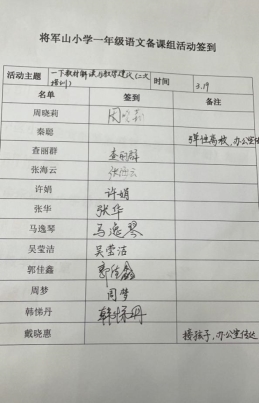 将军山小学一年级语文备课组活动签到
活动主题 一下教材解读与教学建议(二次培训) 时间 3.19
名单 签到 备注
周晓莉 周晓莉
秦聪 弹性离校,办公室
查丽群 查丽群
张海云 张海云
许娟 许娟
张华 张华
马逸琴 马逸琴
吴莹洁 吴莹洁
郭佳鑫 郭佳鑫
周梦 周梦
韩悌丹 韩悌丹
戴晓惠 接孩子,办公室传达